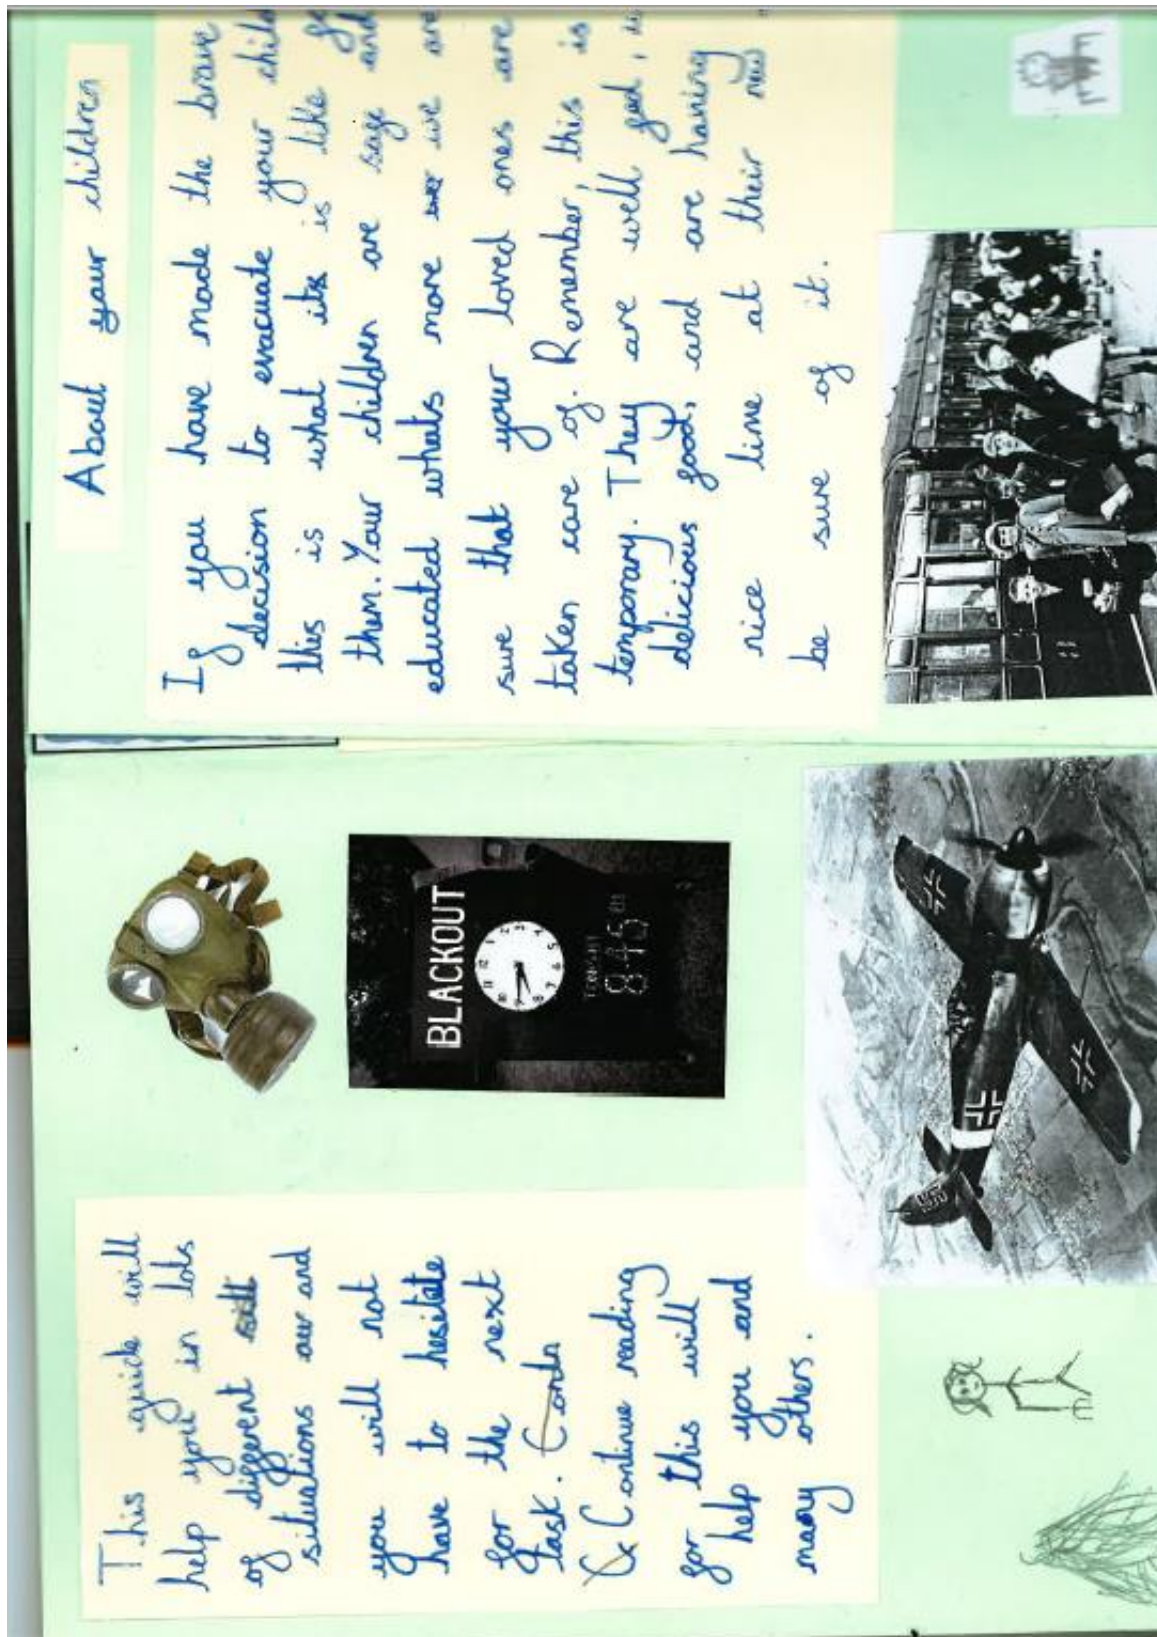 This guide will
help you in lots
of different
situations our and
you will not
have to hesitate
for the next
task.
Continue reading
for this will
help you and
many others.
BLACKOUT
TONIGHT
8.45
About your children
If you have made the brave
decision to evacuate your child
this is what its is like
them. Your children are safe and
educated whats more we are
sure that your loved ones are
taken care of. Remember, this is
temporary. They are well fed,
delicious food, and are having
nice time at their new
be sure of it.